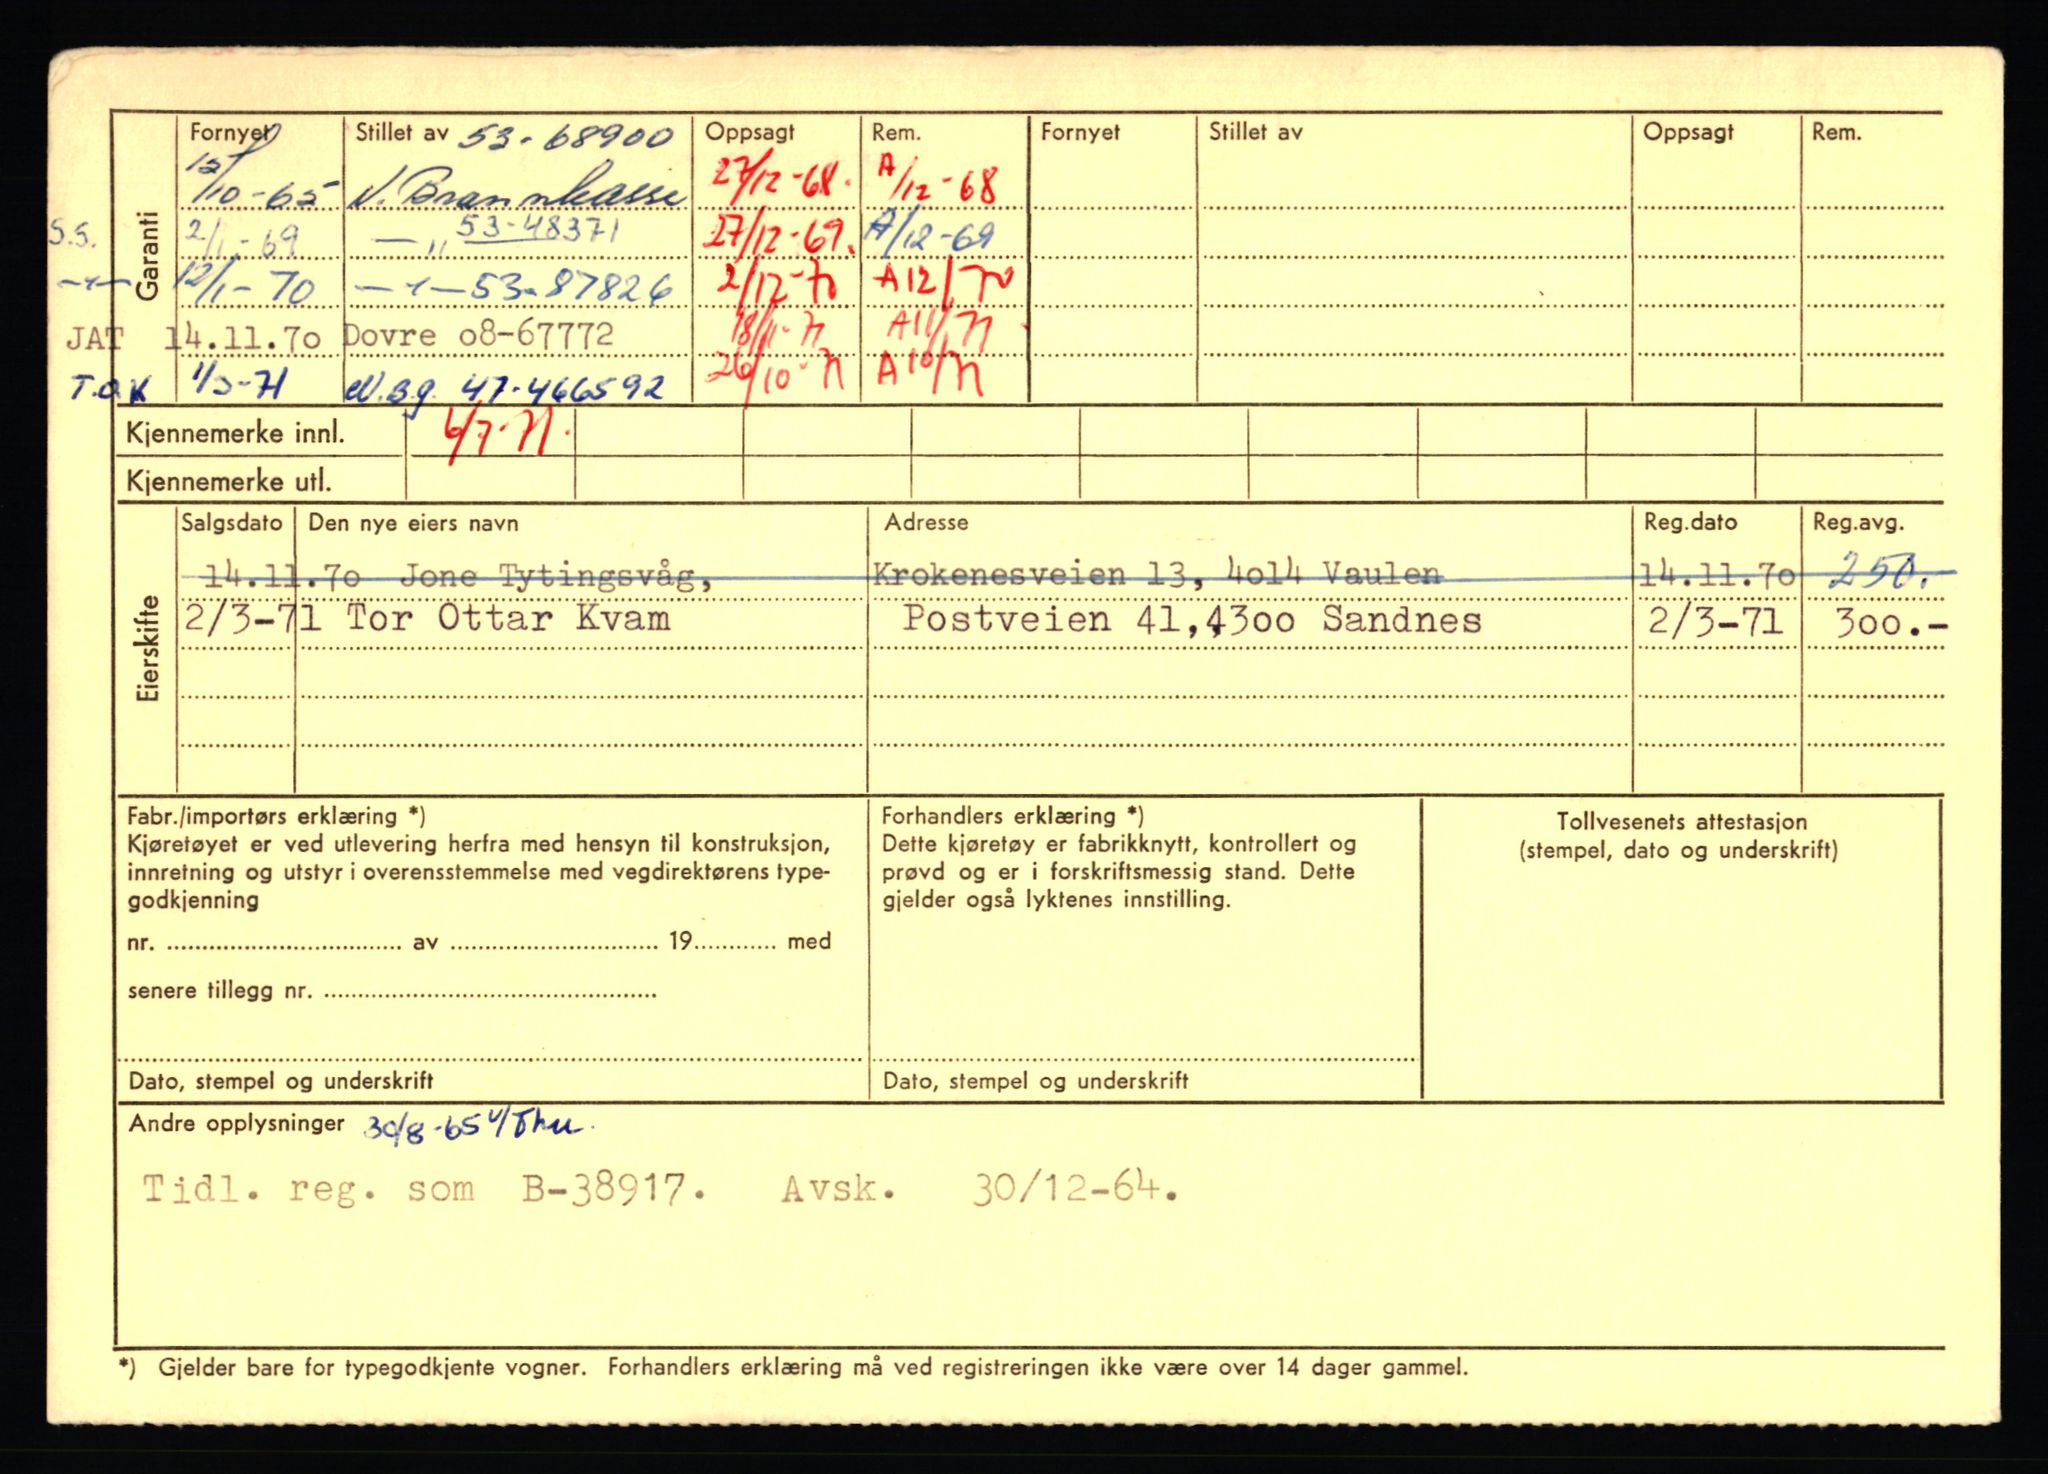 Garanti
Fornyet Stillet av 53-68900 Oppsagt Rem. Fornyet Stillet av Oppsagt Rem.
12/10-65 N. Brannkasse 27/12-68. A/12-68
S.S. 2/1-69 —„— 53-48371 27/12-69. A/12-69
—„— 12/1-70 —„— 53-87826 2/12-70 A12/70
JAT 14.11.7o Dovre o8-67772 18/11-71 A11/71
T.O.K 1/3-71 N.Bg. 47-466592 26/10-71 A10/71
Kjennemerke innl. 6/7-71.
Kjennemerke utl.
Eierskifte
Salgsdato Den nye eiers navn Adresse Reg.dato Reg.avg.
14.11.7o Jone Tytingsvåg, Krokenesveien 13, 4o14 Vaulen 14.11.7o 250.-
2/3-71 Tor Ottar Kvam Postveien 41,43oo Sandnes 2/3-71 3oo.-
Fabr./importørs erklæring *)
Kjøretøyet er ved utlevering herfra med hensyn til konstruksjon,
innretning og utstyr i overensstemmelse med vegdirektørens type-
godkjenning
nr. ........ av ........ 19........ med
senere tillegg nr. ........
Dato, stempel og underskrift
Forhandlers erklæring *)
Dette kjøretøy er fabrikknytt, kontrollert og
prøvd og er i forskriftsmessig stand. Dette
gjelder også lyktenes innstilling.
Dato, stempel og underskrift
Tollvesenets attestasjon
(stempel, dato og underskrift)
Andre opplysninger 30/8-65
Tidl. reg. som B-38917. Avsk. 30/12-64.
*) Gjelder bare for typegodkjente vogner. Forhandlers erklæring må ved registreringen ikke være over 14 dager gammel.